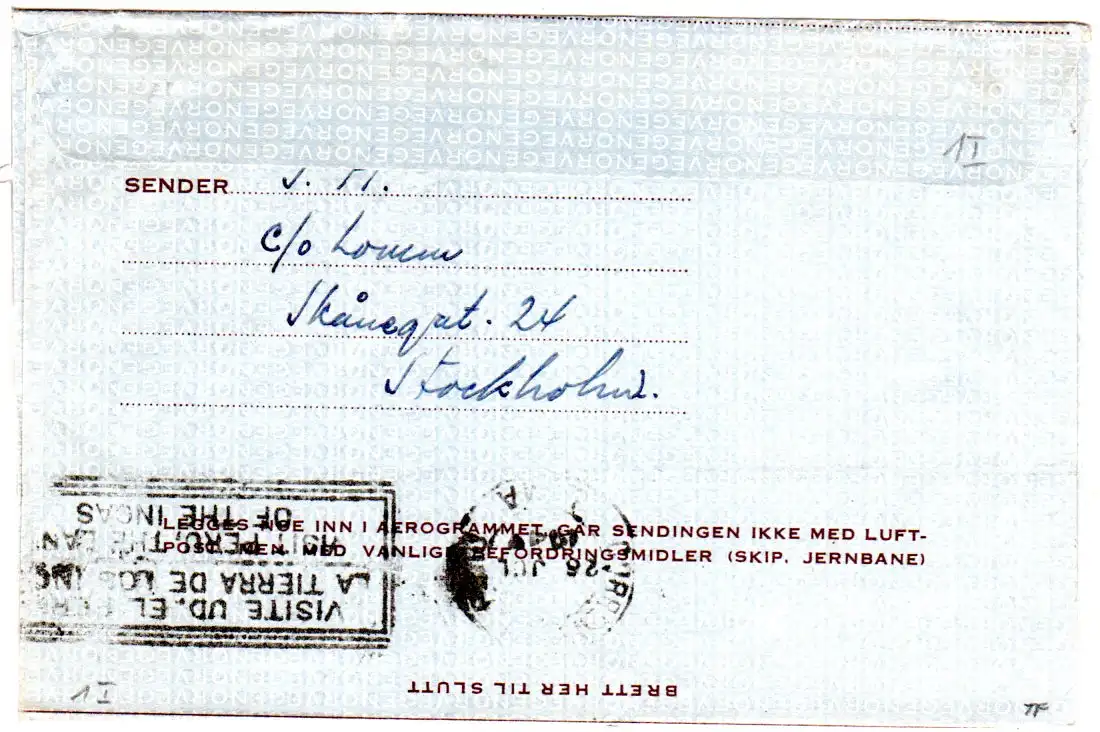 1 I
SENDER J. H.
c/o Lomm
Skånegat. 24
Stockholm.
LEGGES NOE INN I AEROGRAMMET, GÅR SENDINGEN IKKE MED LUFT-
POST, MEN MED VANLIGE BEFORDRINGSMIDLER (SKIP, JERNBANE)
VISITE UD. EL PERU
LA TIERRA DE LOS INC
VISIT PERU, THE LAN
OF THE INCAS
28 JUL
BRETT HER TIL SLUTT
1 I
TF